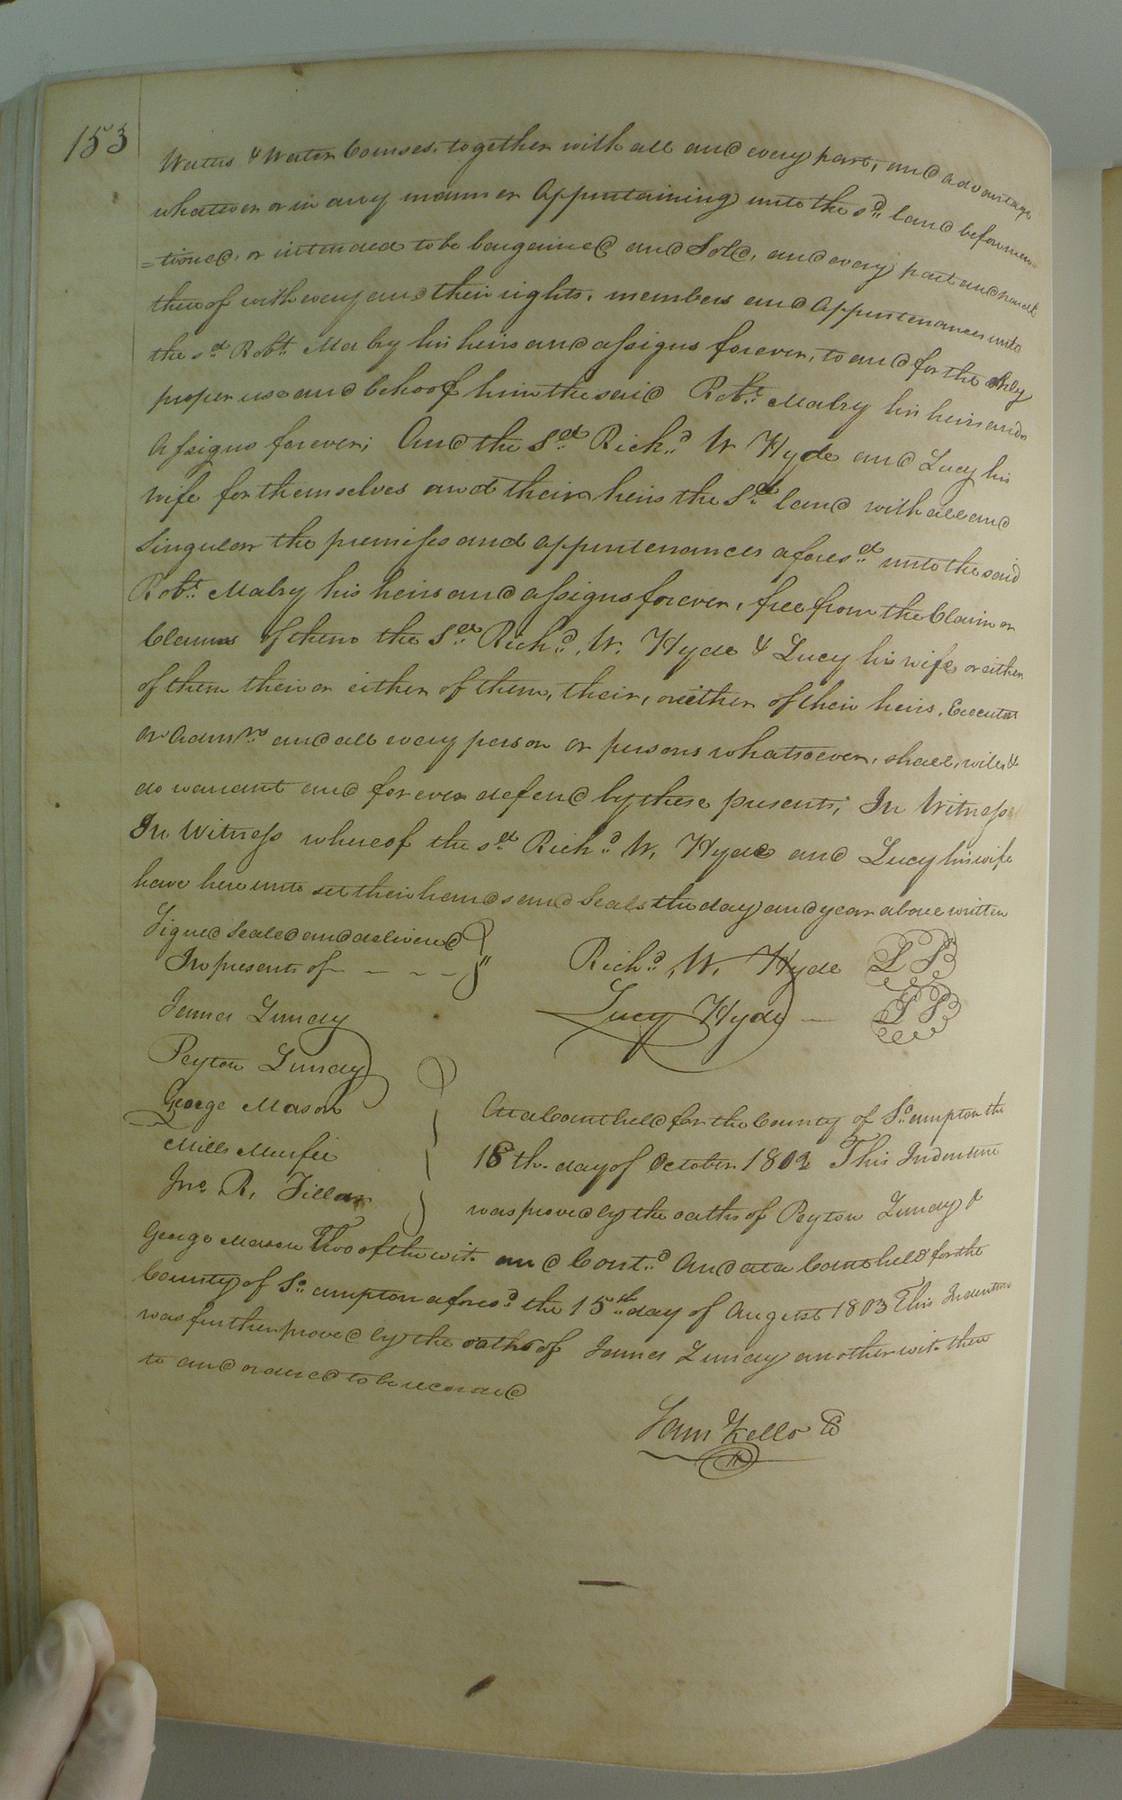 153
Waters & Water Courses, together with all and every part, and advantage
whatever or in any manner Appurtaining unto the sd. land beforemen
=tioned, or intended to be bargained and Sold, and every part and
thereof with every and their rights, members and Appurtenances unto
the sd Robt. Mabry his heirs and assigns forever, to and for the only
proper use and behoof him the said Robt. Mabry his heirs and
Assigns forever; And the Sd Richd. W Hyde and Lucy his
Wife for themselves and their heirs the Sd. land with all and
Singular the premises and appurtenances aforesd. unto the said
Robt. Mabry his heirs and assigns forever, free from the Claim or
Claims of them the Sd. Richd. W. Hyde & Lucy his wife or either
of them their or either of them, their, or either of their heirs, Executors
or Admrs and all every person or persons whatsoever, shall, will &
do warrant and forever defend by these presents; In Witness
In Witness whereof the sd Richd. W. Hyde and Lucy his wife
have hereunto set their hands and Seals the day and year above written
Signed Sealed and delivered
In presents of - - - - Richd. W. Hyde LS
James Lundy Lucy Hyde - LS
Peyton Lundy
George Mason At a Court held for the County of So.ampton the
Mills Murfee 18th. day of October 1802 This Indenture
Jno. R. Fillar was proved by the oaths of Peyton Lundy &
George Mason Two of the wit. and Contd. And at a Court held for the
County of So.ampton aforesd. the 15th day of August 1803 This Indenture
was further proved by the oaths of James Lundy another wit. there
to and ordered to be recorded
Sam Kello